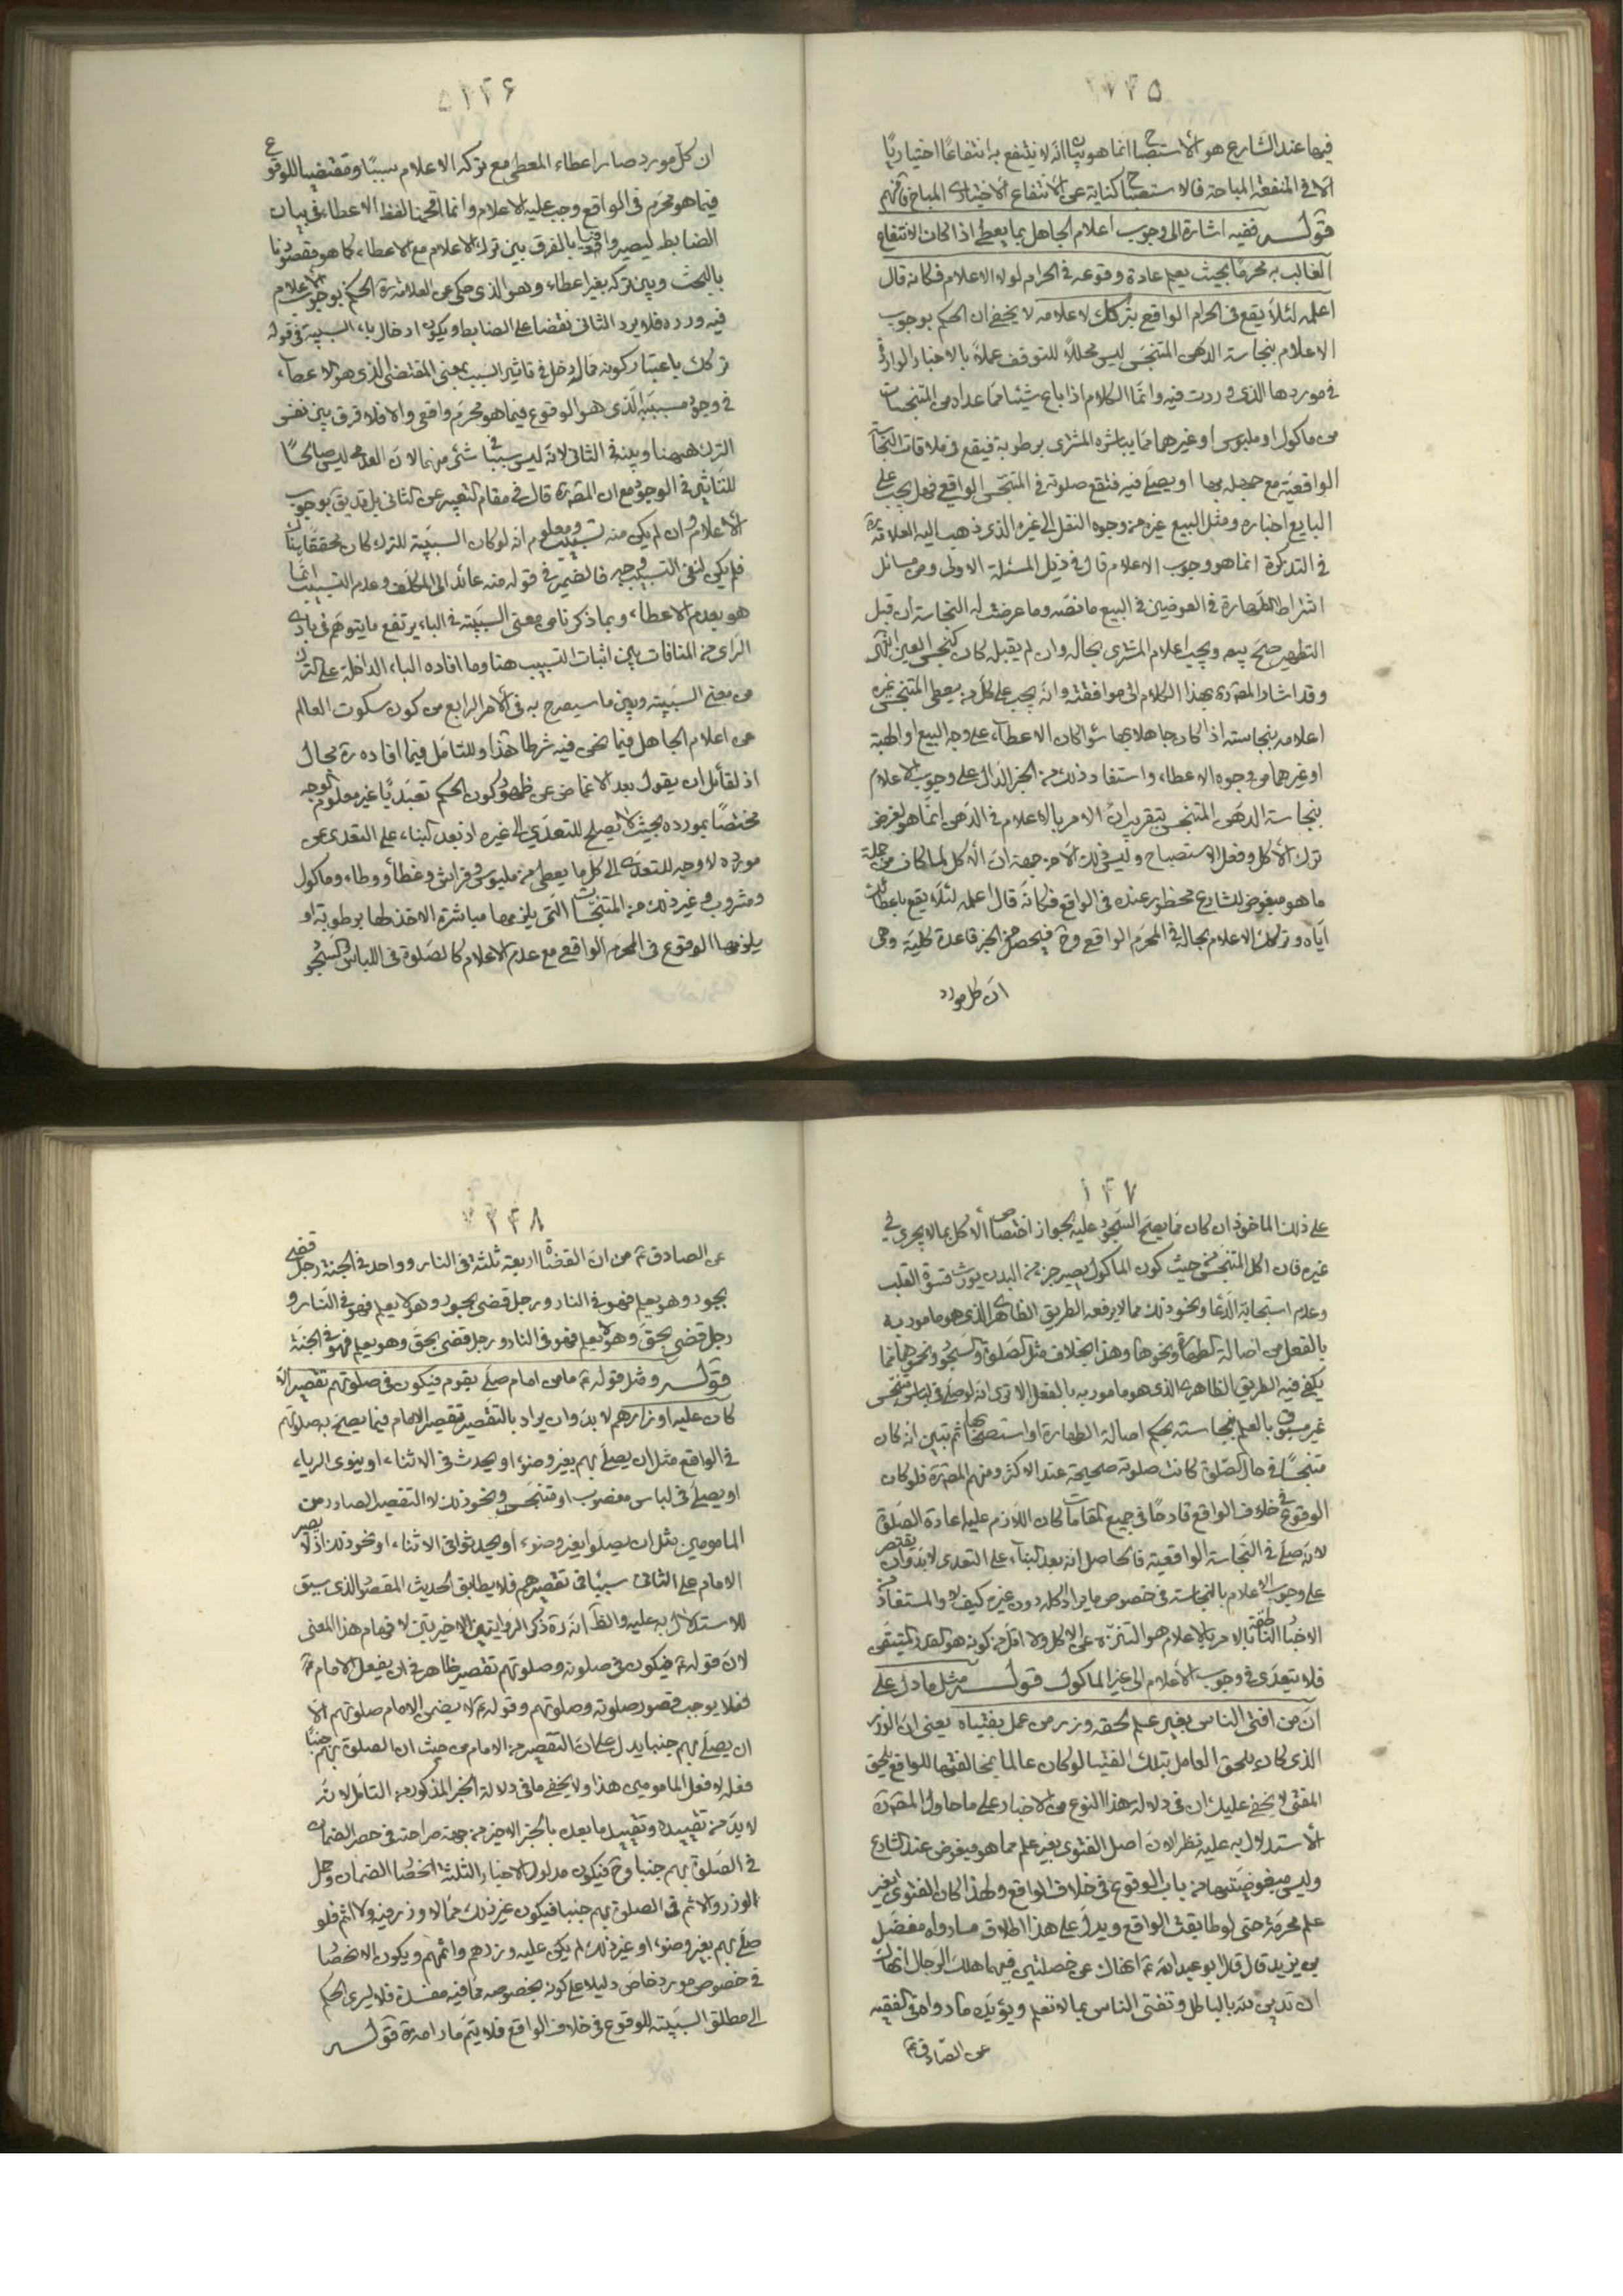 فيها عند الشارع هو الاستصباح انما هو بيان انه لا ينتفع به انتفاعًا اختياريًا
الا فى المنفعة المباحة فالاستصباح كناية عن الانتفاع الاختيارى المباح فافهم
قوله ففيه اشارة الى وجوب اعلام الجاهل بما يعطى اذا كان الانتفاع
الغالب به محرمًا بحيث يعلم عادة وقوعه فى الحرام لولا الاعلام فكانه قال
اعلمه لئلا يقع فى الحرام الواقعى بتركك لاعلامه لا يخفى ان الحكم بوجوب
الاعلام بنجاسة الدهن المتنجس ليس محلاً للتوقف عملاً بالاخبار الواردة
فى موردها الذى وردت فيه وانما الكلام اذا باع شيئا مما عداه من المتنجسات
من ماكول او ملبوس او غيرهما مما يباشره المشترى برطوبة فيقع فى ملاقات النجاسة
الواقعية مع جهله بها او يصلى فيه فتقع صلوته فى المتنجس الواقعى فهل يجب على
البايع اخباره ومثل البيع غيره من وجوه النقل الى غيره الذى ذهب اليه العلامة ره
فى التذكرة انما هو وجوب الاعلام قال فى ذيل المسئلة الاولى من مسائل
اشتراط الطهارة فى العوضين فى البيع ما نصه وما عرضت له النجاسة ان قبل
التطهير صح بيعه ويجب اعلام المشترى بحاله وان لم يقبله كان كنجس العين انتهى
وقد اشار المص ره بهذا الكلام الى موافقته وانه يجب على كل من يعطى المتنجس غيره
اعلامه بنجاسته اذا كان جاهلا بها سواء كان الاعطاء على وجه البيع او الهبة
او غيرهما من وجوه الاعطاء واستفاد ذلك من الخبر الدال على وجوب الاعلام
بنجاسة الدهن المتنجس بتقريب ان الامر بالاعلام فى الدهن انما هو لغرض
ترك الاكل وفعل الاستصباح وليس ذلك الا من جهة ان الاكل لما كان من جملة
ما هو مبغوض للشارع محظور عنده فى الواقع فكانه قال اعلمه لئلا يقع باعطائك
اياه وتركك الاعلام بحاله فى المحرم الواقعى وح فيحصل من الخبر قاعدة كلية وهى
ان كل مورد
ان كل مورد صار اعطاء المعطى مع تركه الاعلام سببًا ومقتضيا للوقوع
فيما هو محرم فى الواقع وجب عليه الاعلام وانما اقحمنا لفظ الاعطاء فى بيان
الضابط ليصير وافيا بالفرق بين ترك الاعلام مع الاعطاء كما هو مقصودنا
بالبحث وبين تركه بغير اعطاء وهو الذى حكى عن العلامة ره الحكم بوجوب الاعلام
فيه ورده فلا يرد الثانى نقضا على الضابط ويكون ادخال باء السببية فى قوله
تركك باعتبار كونه مما له دخل فى تاثير السبب بمعنى المقتضى الذى هو الاعطاء
فى وجود مسببه الذى هو الوقوع فيما هو محرم واقعى والا فلا فرق بين نفس
الترك ههنا وبينه فى الثانى لانه ليس سببًا فى شئ منهما لان العدم ليس صالحًا
للتاثير فى الوجود مع ان المص ره قال فى مقام التعبير عن الثانى بل قد يق بوجوب
الاعلام وان لم يكن منه تسبيب ومعلوم انه لو كان السببية للترك كان محققا هناك
فلم يكن لنفى التسبيب وجه فالضمير فى قوله منه عائد الى المكلف وعدم التسبيب انما
هو بعدم الاعطاء وبما ذكرنا من معنى السببية فى الباء يرتفع ما يتوهم فى بادى
الراى من المنافات بين اثبات التسبيب هنا وما افاده الباء الداخلة على الترك
من معنى السببية وبين ما سيصرح به فى الامر الرابع من كون سكوت العالم
عن اعلام الجاهل فيما نحن فيه شرطا هذا وللتامل فيما افاده ره مجال
اذ لقائل ان يقول بعد الاغماض عن ظهور كون الحكم تعبديًا غير معلوم الوجه
مختصًا بمورده بحيث لا يصلح للتعدى الى غيره اذ بعد البناء على التعدى عن
مورده لا وجه للتعدى الى كل ما يعطى من ملبوس وفراش وغطاء ووطاء وماكول
ومشروب وغير ذلك من المتنجسات التى يلزمها مباشرة الاخذ لها برطوبة او
يلزمها الوقوع فى المحرم الواقعى مع عدم الاعلام كالصلوة فى اللباس والسجود
١٤٧
على ذلك الماخوذ ان كان مما يصح السجود عليه لجواز اختصاص الاكل بما لا يجرى فى
غيره فان اكل المتنجس من حيث كون الماكول يصير جزء من البدن يورث قسوة القلب
وعدم استجابة الدعاء ونحو ذلك مما لا يرفعه الطريق الظاهرى الذى هو مامور به
بالفعل من اصالة الطهارة ونحوها وهذا بخلاف مثل الصلوة والسجود ونحوهما مما
يكفى فيه الطريق الظاهرى الذى هو مامور به بالفعل الا ترى انه لو صلى فى لباس متنجس
غير مسبوق بالعلم بنجاسته بحكم اصالة الطهارة او استصحابها ثم تبين انه كان
متنجسًا فى حال الصلوة كانت صلوته صحيحة عند الاكثر ومنهم المص ره فلو كان
الوقوع فى خلاف الواقع قادحًا فى جميع المقامات لكان اللازم عليه اعادة الصلوة
لانه صلى فى النجاسة الواقعية فالحاصل انه بعد البناء على التعدى لا بد وان يقتصر
على وجوب الاعلام بالنجاسة فى خصوص ما يراد اكله دون غيره كيف لا والمستفاد من
الاخبار الناطقة بالامر بالاعلام هو التنزه عن الاكل ولا اقل من كونه هو القدر المتيقن
فلا يتعدى فى وجوب الاعلام الى غير الماكول قوله مثل ما دل على
ان من افتى الناس بغير علم لحقه وزر من عمل بفتياه يعنى ان الوزر
الذى كان يلحق العامل بتلك الفتيا لو كان عالما بمخالفتها للواقع يلحق
المفتى لا يخفى عليك ان فى دلالة هذا النوع من الاخبار على ما حاول المص ره
الاستدلال به عليه نظرا لان اصل الفتوى بغير علم مما هو مبغوض عند الشارع
وليس مبغوضيتها من باب الوقوع فى خلاف الواقع ولهذا كان الفتوى بغير
علم محرمة حتى لو طابقت الواقع ويدل على هذا الاطلاق ما رواه مفضل
بن يزيد قال قال ابو عبد الله ع انهاك عن خصلتين فيهما هلك الرجال انهاك
ان تدين الله بالباطل وتفتى الناس بما لا تعلم ويؤيده ما رواه فى الفقيه
عن الصادق ع
عن الصادق ع من ان القضاة اربعة ثلثة فى النار وواحد فى الجنة رجل قضى
بجور وهو يعلم فهو فى النار ورجل قضى بجور وهو لا يعلم فهو فى النار و
رجل قضى بحق وهو لا يعلم فهو فى النار ورجل قضى بحق وهو يعلم فهو فى الجنة
قوله ومثل قوله ع ما من امام صلى بقوم فيكون فى صلوتهم تقصير الا
كان عليه اوزارهم لا بد وان يراد بالتقصير تقصير الامام فيما يصح به صلوتهم
فى الواقع مثل ان يصلى بهم بغير وضوء او يحدث فى الاثناء او ينوى الرياء
او يصلى فى لباس مغصوب او متنجس ونحو ذلك لا التقصير الصادر من
المامومين مثل ان يصلوا بغير وضوء او يحدثوا فى الاثناء او نحو ذلك اذ لا يصير
الامام على الثانى سببا فى تقصيرهم فلا يطابق الحديث المقصود الذى سيق
للاستدلال به عليه والظ انه ره ذكر الروايتين الاخيرتين لافهام هذا المعنى
لان قوله ع فيكون فى صلوته وصلوتهم تقصير ظاهر فى ان يفعل الامام ع
فعلا يوجب قصور صلوته وصلوتهم وقوله ع لا يضمن الامام صلوتهم الا
ان يصلى بهم جنبا يدل على ان التقصير من الامام من حيث ان الصلوة بهم جنبًا
فعله لا فعل المامومين هذا ولا يخفى ما فى دلالة الخبر المذكور من التامل لانه
لا بد من تقييده وتقييد ما بعده بالخبر الاخير من جهة صراحته فى حصر الضمان
فى الصلوة بهم جنبا وح فيكون مدلول الاخبار الثلثة انحصار الضمان وحمل
الوزر والاثم فى الصلوة بهم جنبا فيكون غير ذلك مما لا وزر فيه ولا اثم فلو
صلى بهم بغير وضوء او غير ذلك لم يكن عليه وزرهم واثمهم ويكون الانحصار
فى خصوص مورد خاص دليلا على كونه بخصوصه مما فيه مفسدة فلا يسرى الحكم
الى مطلق السببية للوقوع فى خلاف الواقع فلا يتم ما رامه ره قوله